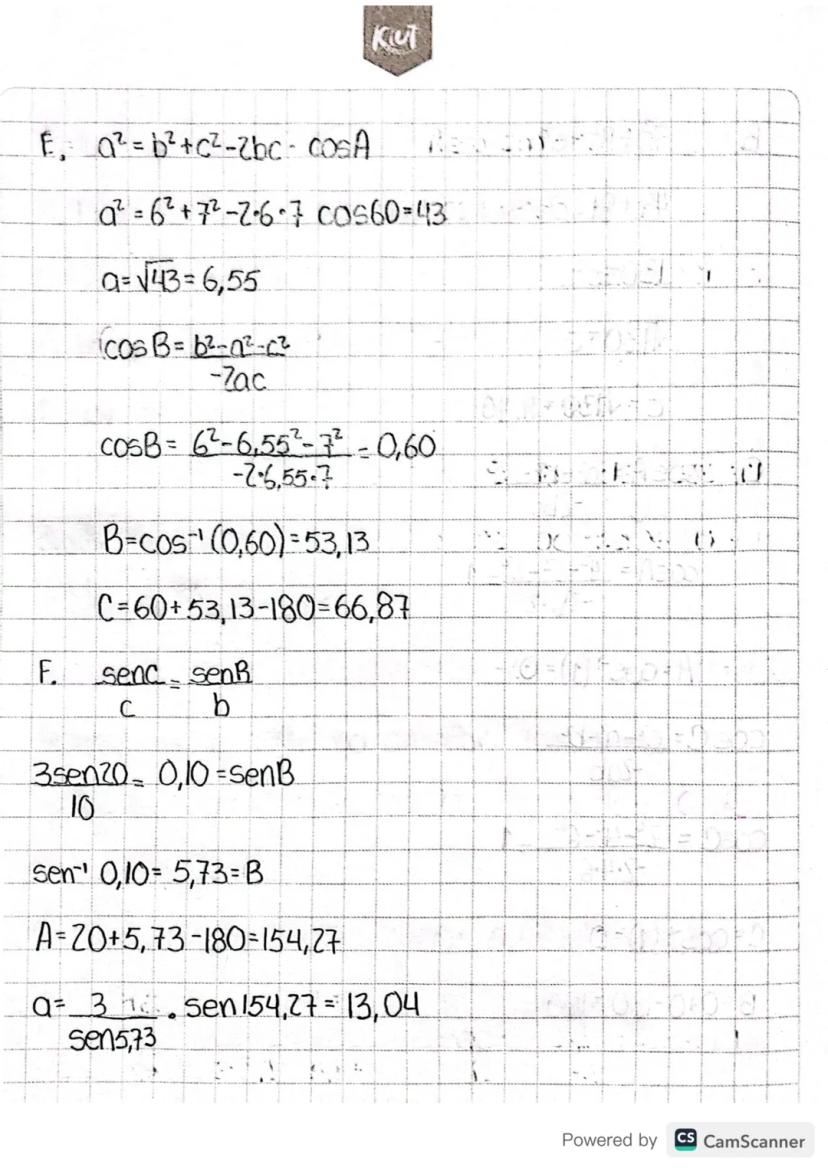 KIUT
E. a² = b² + c² - 2bc · cosA
a² = 6² + 7² - 2·6·7 cos60 = 43
a = √43 = 6,55
cosB = b² - a² - c²
-2ac
cosB = 6² - 6,55² - 7² = 0,60
-2·6,55·7
B = cos⁻¹ (0,60) = 53,13
C = 60 + 53,13 - 180 = 66,87
F. senC = senB
c b
3sen20 = 0,10 = senB
10
sen⁻¹ 0,10 = 5,73 = B
A = 20 + 5,73 - 180 = 154,27
a = 3 · sen154,27 = 13,04
sen5,73
Powered by CS CamScanner